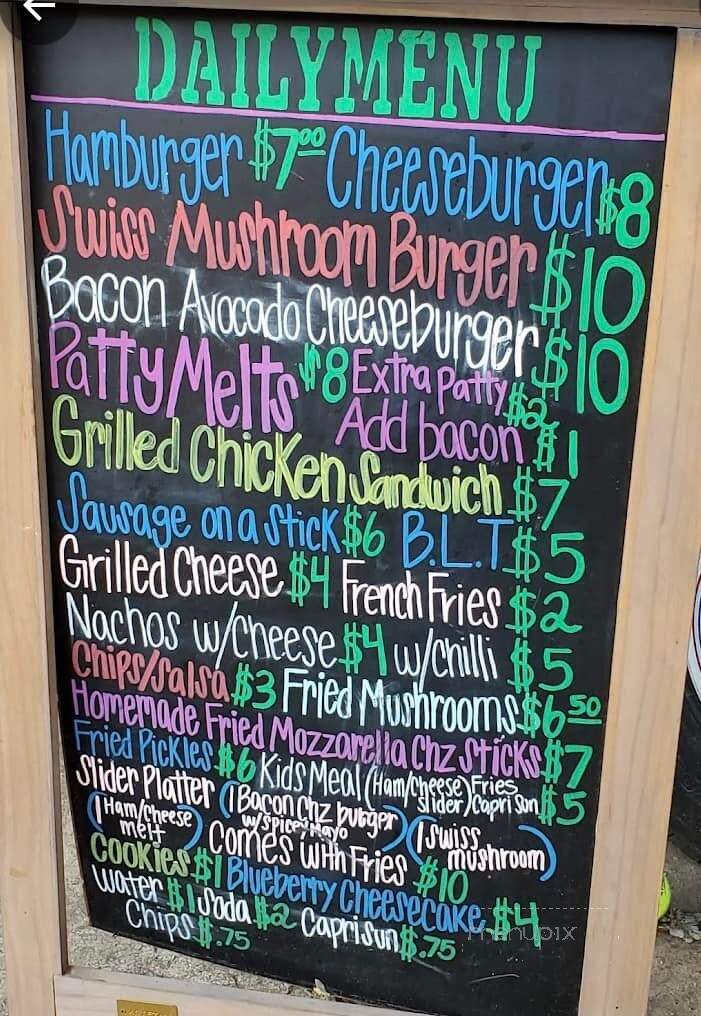 DAILY MENU
Hamburger $7.00 Cheeseburger $8
Swiss Mushroom Burger $10
Bacon Avocado Cheeseburger $10
Patty Melts $8 Extra patty $2
Add bacon $1
Grilled Chicken Sandwich $7
Sausage on a Stick $6 B.L.T $5
Grilled Cheese $4 French Fries $2
Nachos w/cheese $4 w/chilli $5
Chips/Salsa $3 Fried Mushrooms $6.50
Homemade Fried Mozzarella Chz Sticks $7
Fried Pickles $6 Kids Meal (Ham/Cheese slider) Fries Capri Sun $5
Slider Platter (1 Bacon Chz burger w/spicey mayo)
(1 Ham/Cheese melt) (1 Swiss mushroom)
Comes with Fries $10
Cookies $1 Blueberry Cheesecake $4
Water $1 Soda $2 Capri Sun $.75
Chips $.75
menupix